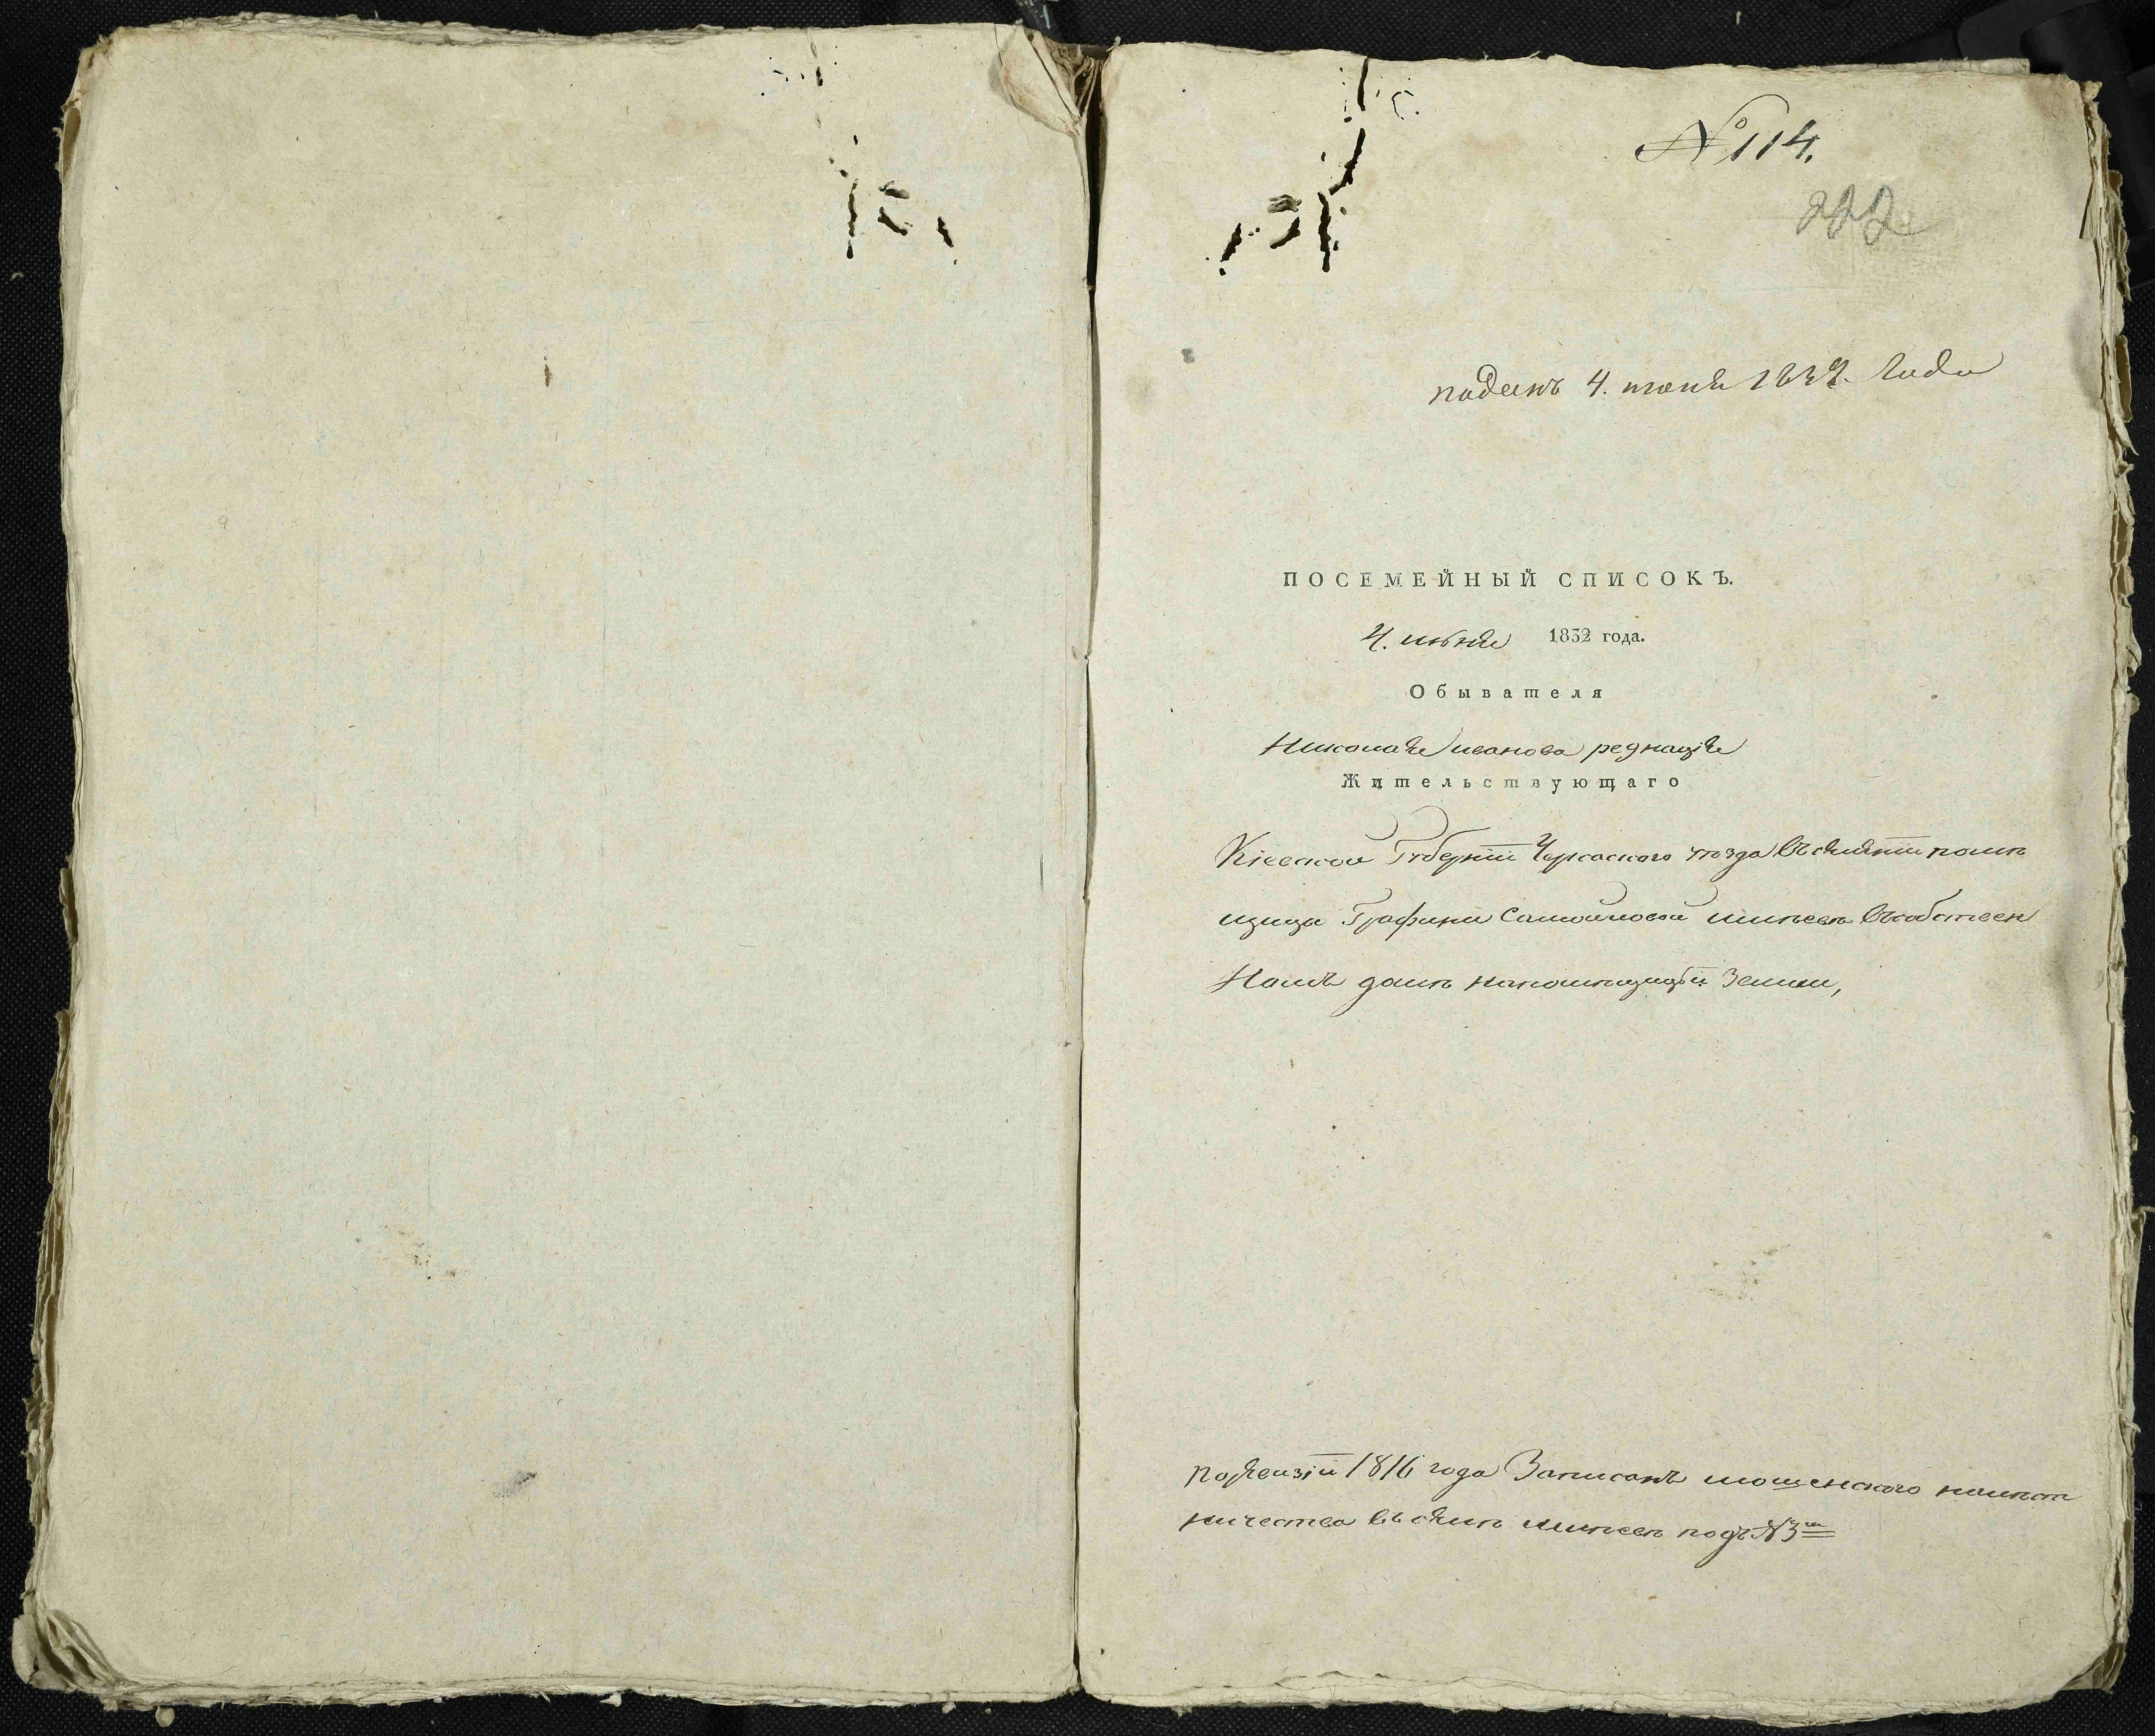 № 114.
222
поданъ 4. июня 1832. Года
ПОСЕМЕЙНЫЙ СПИСОКЪ.
4. июня 1832 года.
Обывателя
Николая иванова
Жительствующаго
Кіевской Губерніи Черкаского уезда въ имѣніи помѣ
щицы Графини Самойловой въ собствен
номъ доме на помещицкой земли,
по ревизіи 1816 года Записанъ мошенского намест
ничества въ подъ № 3м